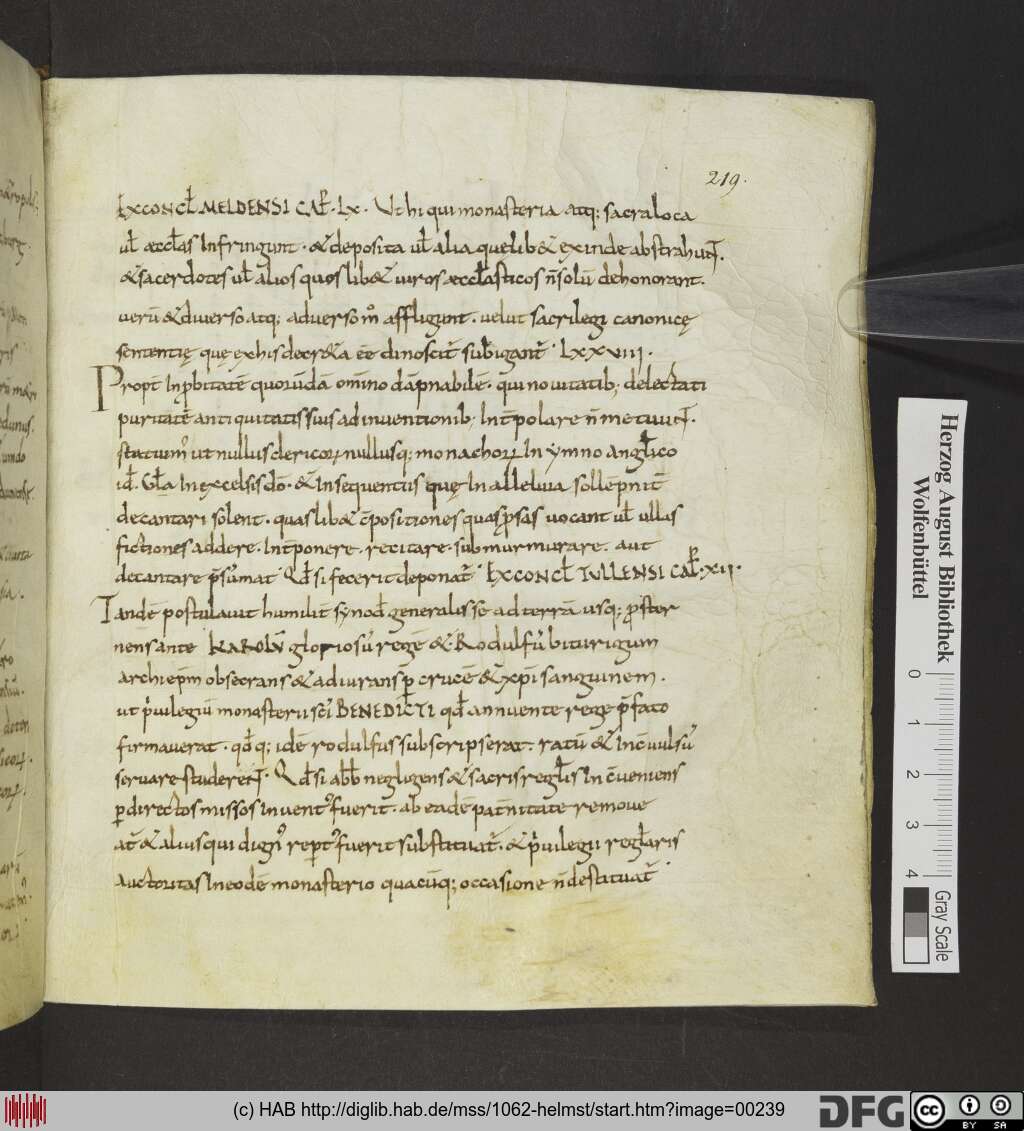 219.
EX CONCL̄ MELDENSI CAP̄. LX. Ut hi qui monasteria atq; sacra loca
ul̄ æccl̄as Infringunt. & deposita ul̄ alia quelib& exinde abstrahunt.
& sacerdotes ul̄ alios quoslib& uiros æccl̄asticos n̄ solū dehonorant.
uerū & diuerso atq; aduerso m̊ affligunt. uelut sacrilegi canonicę
sententię quę ex his decr&a eē dinoscit̄ subigant̄. LXXVIII.
Propt̄ Inp̄bitatē quorūdā omīno dāpnabilē. qui nouitatib; delectati
puritatē antiquitatis suis adinuentionib; Int̄polare n̄ metuunt.
statuim᾽ ut nullus clericoꝝ nullusq; monachoꝝ In ymno angl̄ico
id̄. Gl̄a In excelsis dō. & In sequentiis quę In alleluia sollēpnit̄
decantari solent. quaslib& c̄positiones quas ꝓsas uocant ul̄ ullas
fictiones addere. Int̄ponere. recitare. submurmurare. aut
decantare p̄sumat. Qd̄ si fecerit deponat̄. EX CONCL̄ TULLENSI CAP̄. XII.
Tandē postulauit humilit̄ synod̄ generalis se ad terrā usq; ꝓster
nens ante KAROLŪ gloriosū regē & Rodulfū biturigum
archiep̄m obsecrans & adiurans ꝑ crucē & xp̄i sanguinem.
ut p̄uilegiū monasterii sc̄i BENEDICTI qd̄ annuente rege p̄fato
firmauerat. qd̄q; idē rodulfus subscripserat. ratū & Inc̄uulsū
seruare studerent. Qd̄ si abb̄ neglegens & sacris regl̄is In c̄ueniens
ꝑ directos missos Inuent᾽ fuerit. ab eadē pat̄nitate remoue
at̄ & alius qui dign᾽ rep̄t᾽ fuerit substituat̄. & p̄uilegii regl̄aris
auctoritas In eodē monasterio quacūq; occasione n̄ destituat̄
Herzog August Bibliothek
Wolfenbüttel
0 1 2 3 4
Gray Scale
(c) HAB http://diglib.hab.de/mss/1062-helmst/start.htm?image=00239
DFG
cc BY SA